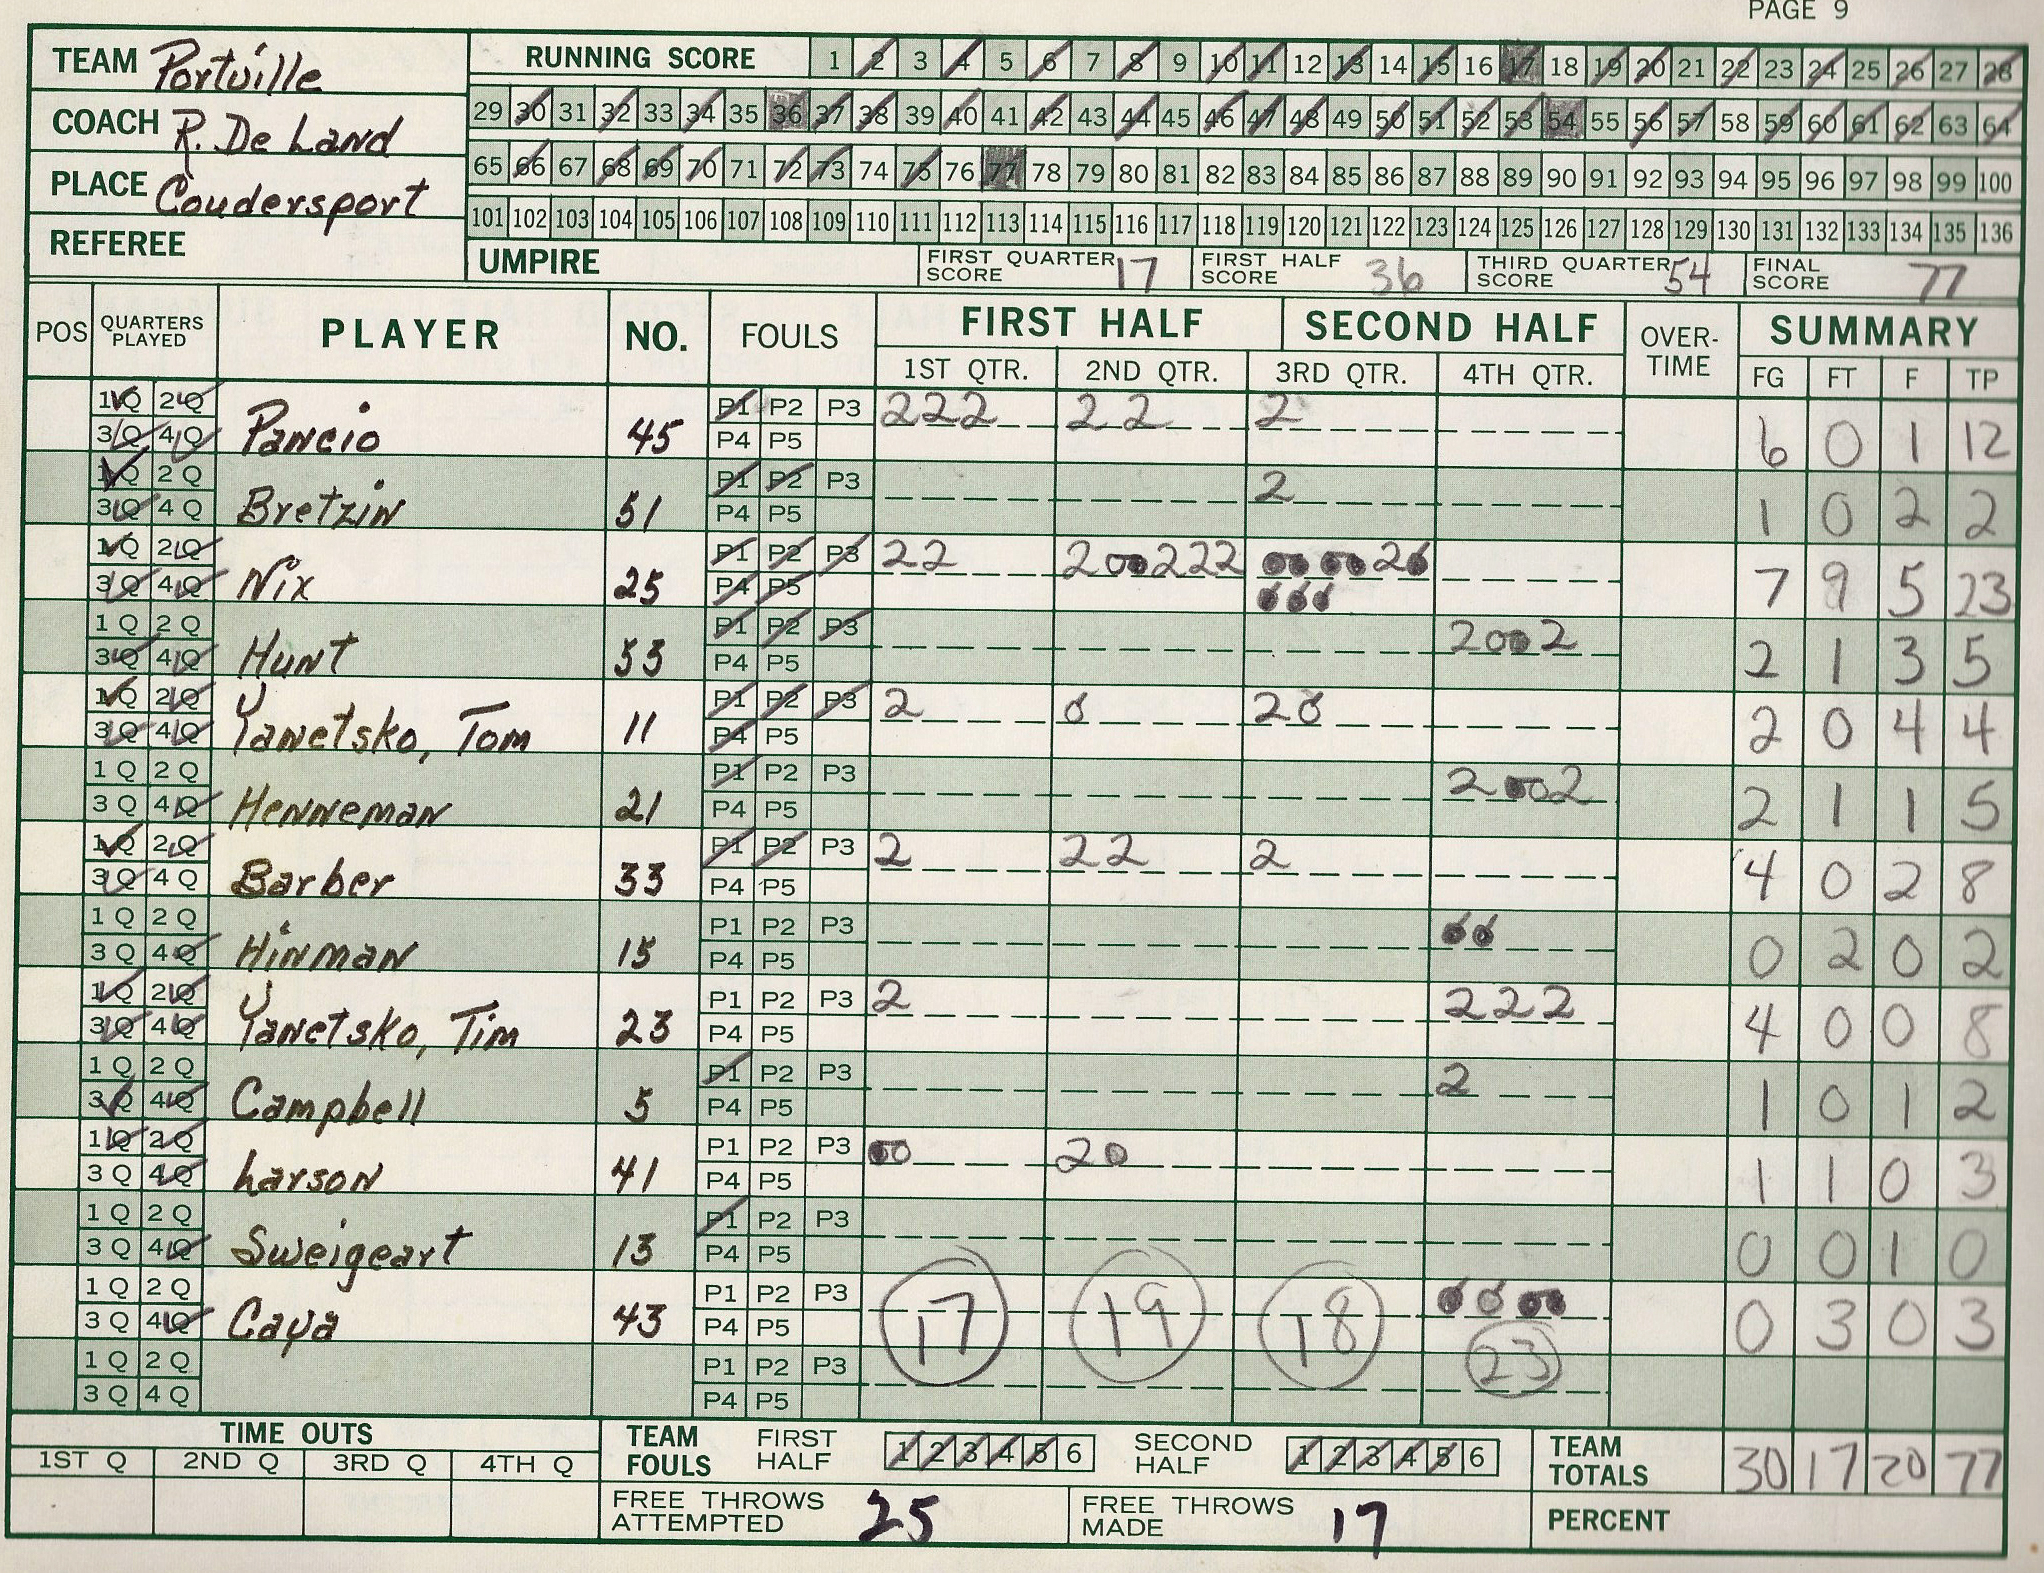 PAGE 9
TEAM Portville
COACH R. De Land
PLACE Coudersport
REFEREE
RUNNING SCORE 1 2 3 4 5 6 7 8 9 10 11 12 13 14 15 16 17 18 19 20 21 22 23 24 25 26 27 28
29 30 31 32 33 34 35 36 37 38 39 40 41 42 43 44 45 46 47 48 49 50 51 52 53 54 55 56 57 58 59 60 61 62 63 64
65 66 67 68 69 70 71 72 73 74 75 76 77 78 79 80 81 82 83 84 85 86 87 88 89 90 91 92 93 94 95 96 97 98 99 100
101 102 103 104 105 106 107 108 109 110 111 112 113 114 115 116 117 118 119 120 121 122 123 124 125 126 127 128 129 130 131 132 133 134 135 136
UMPIRE FIRST QUARTER SCORE 17 FIRST HALF SCORE 36 THIRD QUARTER SCORE 54 FINAL SCORE 77
POS QUARTERS PLAYED PLAYER NO. FOULS FIRST HALF SECOND HALF OVER-TIME SUMMARY
1ST QTR. 2ND QTR. 3RD QTR. 4TH QTR. FG FT F TP
1Q 2Q P1 P2 P3 222 22 2
3Q 4Q Pancio 45 P4 P5 6 0 1 12
1Q 2Q P1 P2 P3 2
3Q 4Q Bretzin 51 P4 P5 1 0 2 2
1Q 2Q P1 P2 P3 22 2 00 222 00 00 2 0
3Q 4Q Nix 25 P4 P5 000 7 9 5 23
1Q 2Q P1 P2 P3 2 00 2
3Q 4Q Hunt 53 P4 P5 2 1 3 5
1Q 2Q P1 P2 P3 2 0 20
3Q 4Q Yanetsko, Tom 11 P4 P5 2 0 4 4
1Q 2Q P1 P2 P3 2 00 2
3Q 4Q Henneman 21 P4 P5 2 1 1 5
1Q 2Q P1 P2 P3 2 22 2
3Q 4Q Barber 33 P4 P5 4 0 2 8
1Q 2Q P1 P2 P3 00
3Q 4Q Hinman 15 P4 P5 0 2 0 2
1Q 2Q P1 P2 P3 2 222
3Q 4Q Yanetsko, Tim 23 P4 P5 4 0 0 8
1Q 2Q P1 P2 P3 2
3Q 4Q Campbell 5 P4 P5 1 0 1 2
1Q 2Q P1 P2 P3 00 20
3Q 4Q Larson 41 P4 P5 1 1 0 3
1Q 2Q P1 P2 P3
3Q 4Q Sweigeart 13 P4 P5 0 0 1 0
1Q 2Q P1 P2 P3 0 0 00
3Q 4Q Caya 43 P4 P5 17 19 18 0 3 0 3
1Q 2Q P1 P2 P3 23
3Q 4Q P4 P5
TIME OUTS
1ST Q 2ND Q 3RD Q 4TH Q
TEAM FOULS FIRST HALF 1 2 3 4 5 6 SECOND HALF 1 2 3 4 5 6 TEAM TOTALS 30 17 20 77
FREE THROWS ATTEMPTED 25 FREE THROWS MADE 17 PERCENT